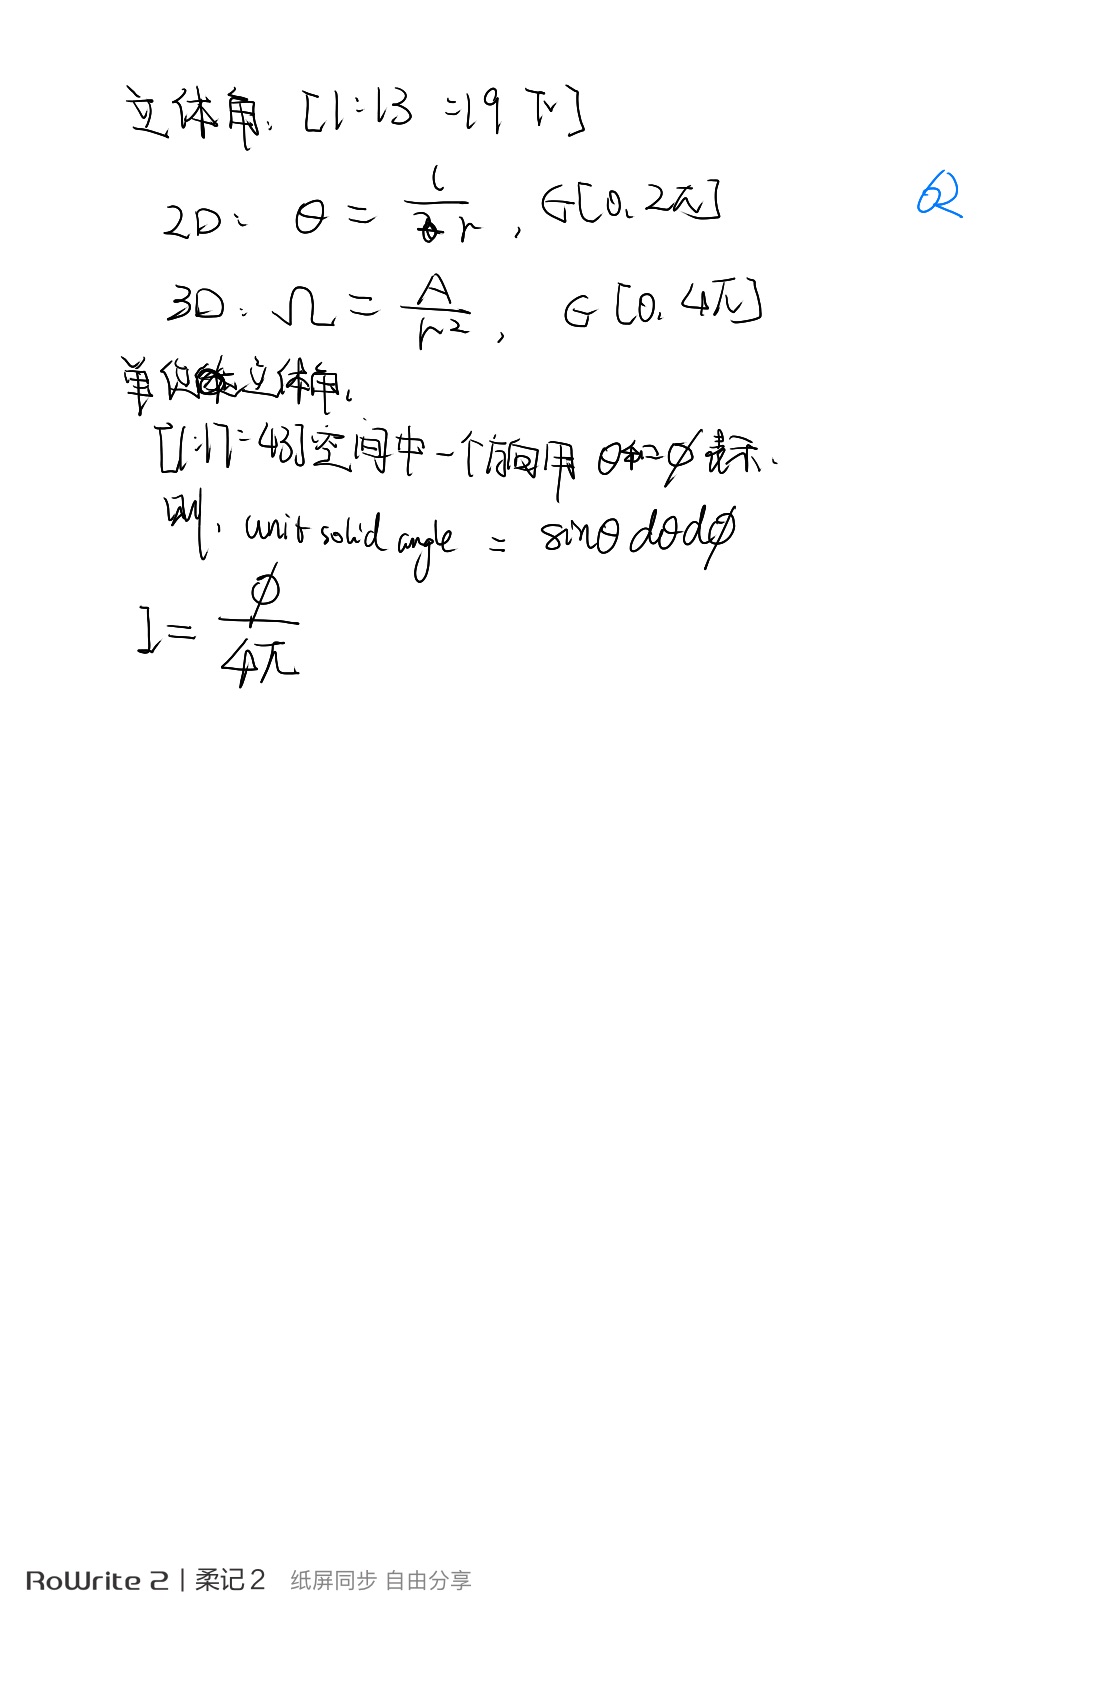 立体角. [1:13:19 下]
2D: θ = l/r, ∈[0, 2π]
3D: Ω = A/r², ∈[0, 4π]
单位立体角.
[1:17:43]空间中一个方向用 θ和φ表示.
则, unit solid angle = sinθ dθ dφ
I = φ/4π
RoWrite 2 | 柔记 2 纸屏同步 自由分享